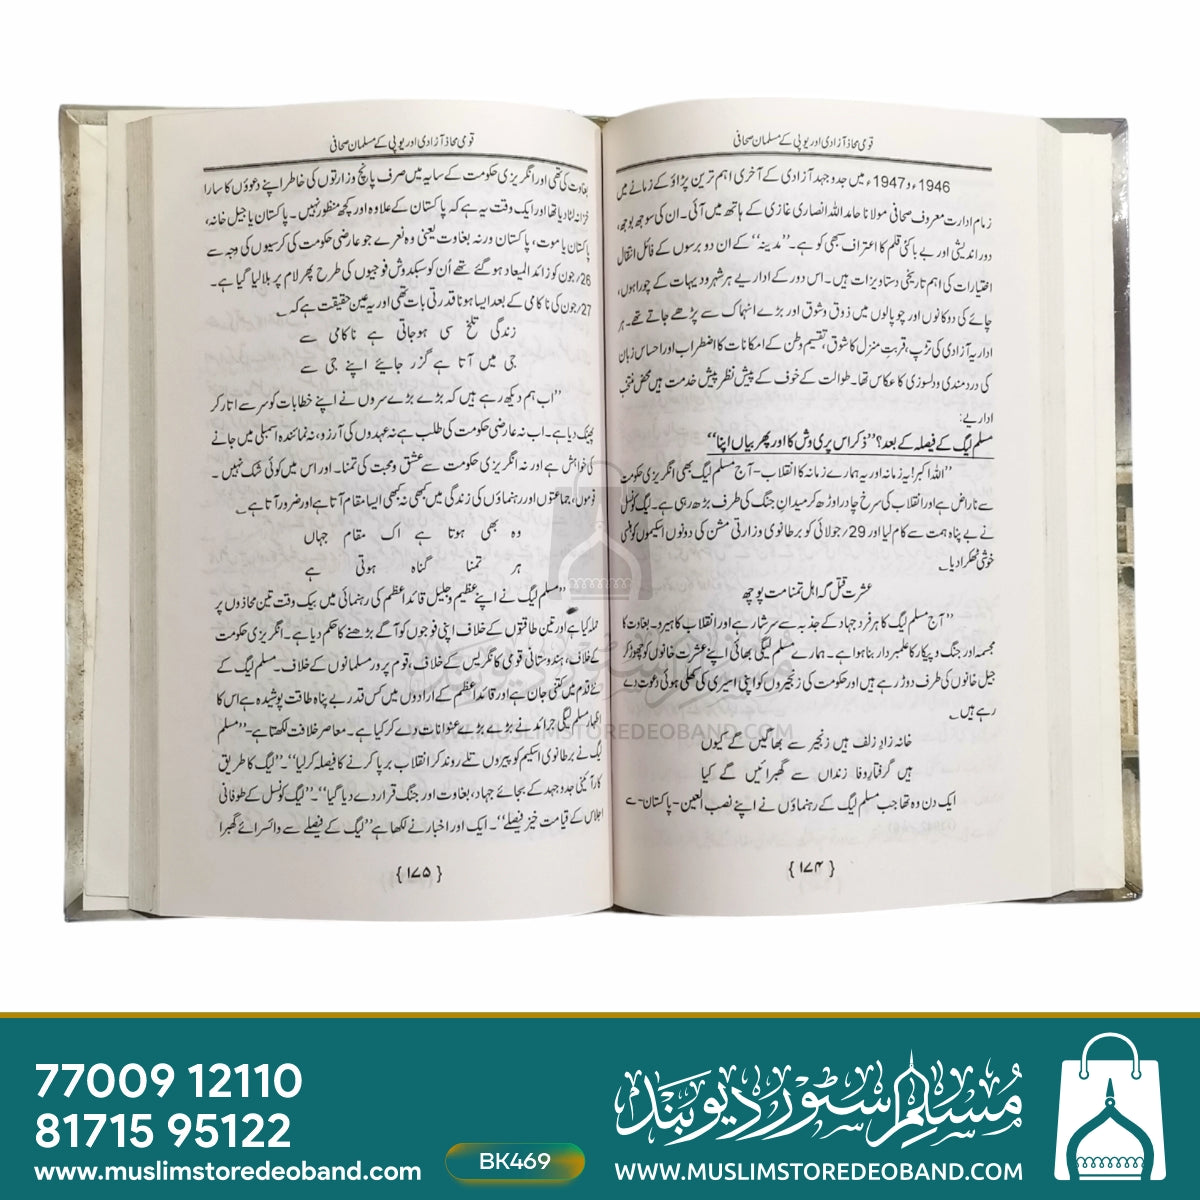 قومی محاذ آزادی اور یوپی کے مسلمان صحافی
1946ء و1947ء میں جدوجہد آزادی کے آخری اہم ترین پڑاؤ کے زمانے میں
زمام ادارت معروف صحافی مولانا حامد اللہ انصاری غازی کے ہاتھ میں آئی۔ ان کی سوجھ بوجھ،
دور اندیشی اور بے باکی قلم کا اعتراف سبھی کو ہے۔ ”مدینہ“ کے ان دو برسوں کے فائل انتقال
اختیارات کی اہم تاریخی دستاویزات ہیں۔ اس دور کے اداریے ہر شہر و دیہات کے چوراہوں،
چائے کی دوکانوں اور چوپالوں میں ذوق وشوق اور بڑے انہماک سے پڑھے جاتے تھے۔ ہر
اداریہ آزادی کی تڑپ، قربت منزل کا شوق، تقسیم وطن کے امکانات کا اضطراب اور احساس زبان
کی دردمندی ودلسوزی کا عکاس تھا۔ طوالت کے خوف کے پیش نظر پیش خدمت ہیں محض منتخب
اداریے:
مسلم لیگ کے فیصلہ کے بعد؟ ”ذکر اس پری وش کا اور پھر بیاں اپنا“
”اللہ اکبر! یہ زمانہ اور یہ ہمارے زمانہ کا انقلاب – آج مسلم لیگ بھی انگریزی حکومت
سے ناراض ہے اور انقلاب کی سرخ چادر اوڑھ کر میدان جنگ کی طرف بڑھ رہی ہے۔ لیگ کونسل
نے بے پناہ ہمت سے کام لیا اور 29/جولائی کو برطانوی وزارتی مشن کی دونوں اسکیموں کو ہنسی
خوشی ٹھکرا دیا۔
عشرت قتل گہ اہل تمنا مت پوچھ
”آج مسلم لیگ کا ہر فرد جہاد کے جذبہ سے سرشار ہے اور انقلاب کا ہیرو۔ بغاوت کا
مجسمہ اور جنگ و پیکار کا علمبردار بنا ہوا ہے۔ ہمارے مسلم لیگی بھائی اپنے عشرت خانوں کو چھوڑ کر
جیل خانوں کی طرف دوڑ رہے ہیں اور حکومت کی زنجیروں کو اپنی اسیری کی کھلی ہوئی دعوت دے
رہے ہیں۔
خانہ زادِ زلف ہیں زنجیر سے بھاگیں گے کیوں
ہیں گرفتارِ وفا زنداں سے گھبرائیں گے کیا
ایک دن وہ تھا جب مسلم لیگ کے رہنماؤں نے اپنے نصب العین – پاکستان – سے
{۱۷۴}
قومی محاذ آزادی اور یوپی کے مسلمان صحافی
بغاوت کی تھی اور انگریزی حکومت کے سایہ میں صرف پانچ وزارتوں کی خاطر اپنے دعوؤں کا سارا
خزانہ لٹا دیا تھا اور ایک وقت یہ ہے کہ پاکستان کے علاوہ اور کچھ منظور نہیں۔ پاکستان یا جیل خانہ،
پاکستان یا موت، پاکستان ورنہ بغاوت یعنی وہ نعرے جو عارضی حکومت کی کرسیوں کی وجہ سے
26/جون کو زائد المیعاد ہو گئے تھے اُن کو سبکدوش فوجیوں کی طرح پھر لام پر بلا لیا گیا ہے۔
27/جون کی ناکامی کے بعد ایسا ہونا قدرتی بات تھی اور یہ عین حقیقت ہے کہ۔
زندگی تلخ سی ہوجاتی ہے ناکامی سے
جی میں آتا ہے گزر جائیے اپنے جی سے
”اب ہم دیکھ رہے ہیں کہ بڑے بڑے سروں نے اپنے خطابات کو سر سے اتار کر
پھینک دیا ہے۔ اب نہ عارضی حکومت کی طلب ہے نہ عہدوں کی آرزو، نہ نمائندہ اسمبلی میں جانے
کی خواہش ہے اور نہ انگریزی حکومت سے عشق و محبت کی تمنا۔ اور اس میں کوئی شک نہیں۔
قوموں، جماعتوں اور رہنماؤں کی زندگی میں کبھی نہ کبھی ایسا مقام آتا ہے اور ضرور آتا ہے۔
وہ بھی ہوتا ہے اک مقام جہاں
ہر تمنا گناہ ہوتی ہے
”مسلم لیگ نے اپنے عظیم و جلیل قائد اعظم کی رہنمائی میں بیک وقت تین محاذوں پر
حملہ کیا ہے اور تین طاقتوں کے خلاف اپنی فوجوں کو آگے بڑھنے کا حکم دیا ہے۔ انگریزی حکومت
کے خلاف، ہندوستانی قومی کانگریس کے خلاف، قوم پرور مسلمانوں کے خلاف۔ مسلم لیگ کے
نئے قدم میں کتنی جان ہے اور قائد اعظم کے ارادوں میں کس قدر بے پناہ طاقت پوشیدہ ہے اس کا
اظہار مسلم لیگی جرائد نے بڑے بڑے عنوانات دے کر کیا ہے۔ معاصر خلافت لکھتا ہے – ”مسلم
لیگ نے برطانوی اسکیم کو پیروں تلے روند کر انقلاب برپا کرنے کا فیصلہ کر لیا“۔ ”لیگ کا طریق
کار آئینی جدوجہد کے بجائے جہاد، بغاوت اور جنگ قرار دے دیا گیا“۔ ”لیگ کونسل کے طوفانی
اجلاس کے قیامت خیز فیصلے“۔ ایک اور اخبار نے لکھا ہے ”لیگ کے فیصلے سے وائسرائے گھبرا
{۱۷۵}
مسلم سٹور دیوبند
WWW.MUSLIMSTOREDEOBAND.COM
77009 12110
81715 95122
www.muslimstoredeoband.com
BK469
مسلم سٹور دیوبند
WWW.MUSLIMSTOREDEOBAND.COM